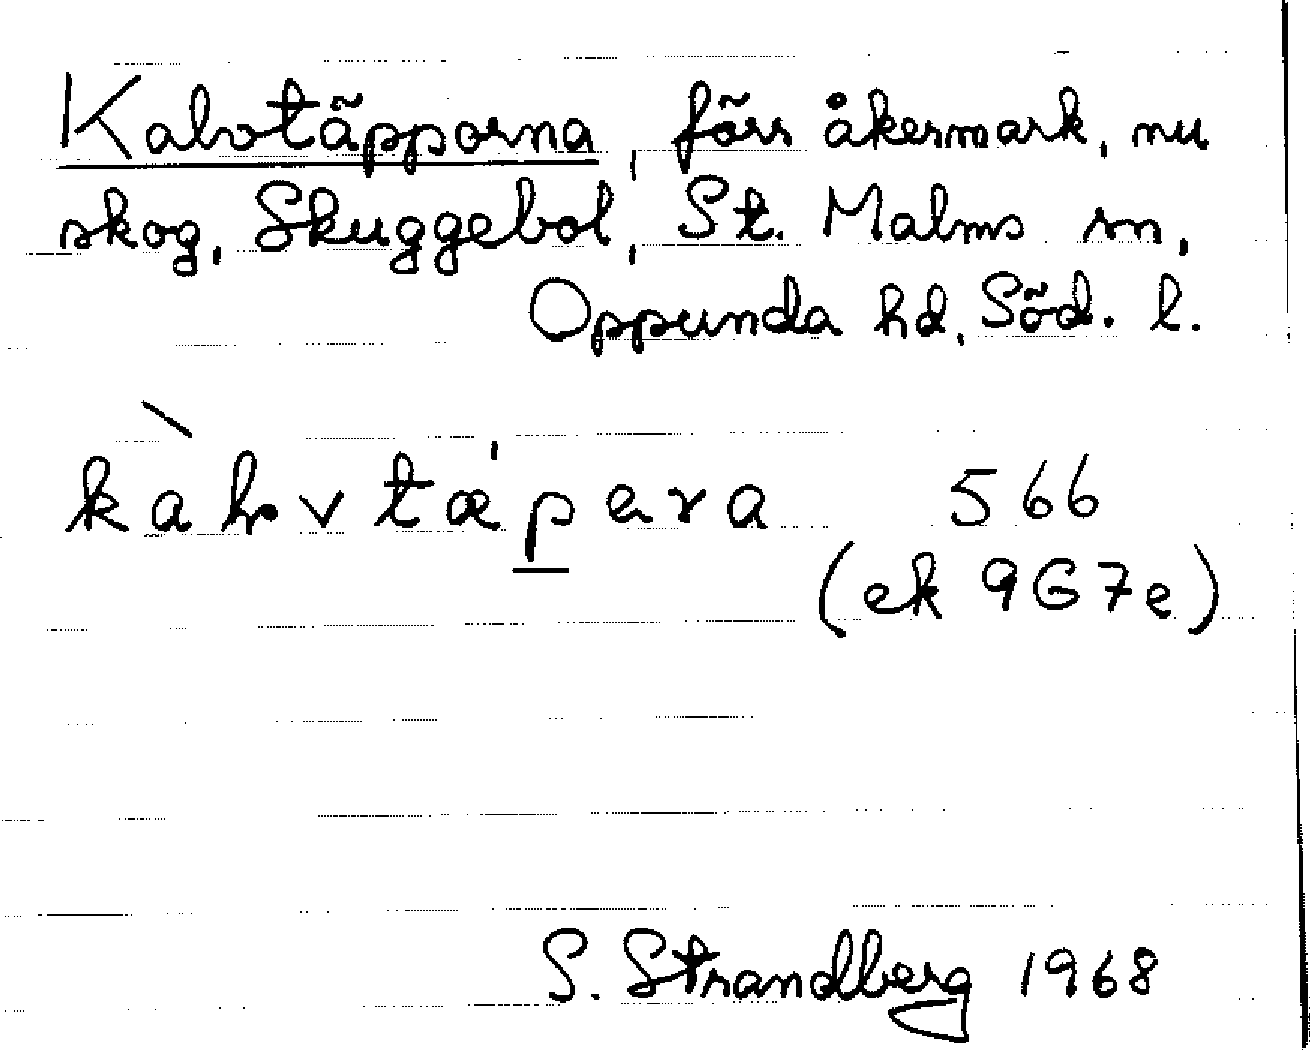 Kalvtäpporna, förr åkermark, nu
skog, Skuggebol, St. Malms sn,
Oppunda hd, Söd. l.
566
(ek 9G7e)
S. Strandberg 1968